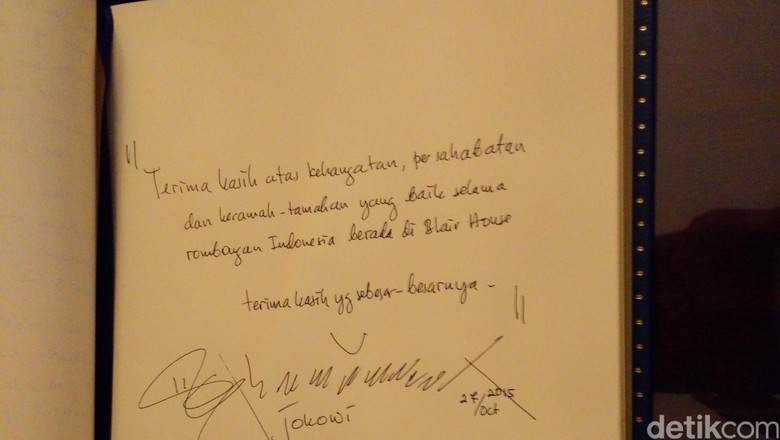 "
Terima kasih atas kehangatan, persahabatan
dan keramah-tamahan yang baik selama
rombongan Indonesia berada di Blair House
terima kasih yg sebesar-besarnya -
"
Jokowi
27/Oct 2015
detikcom